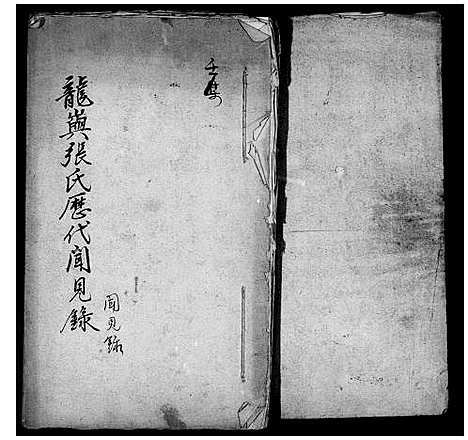 壬集
龍張氏歷代聞見錄
聞見錄